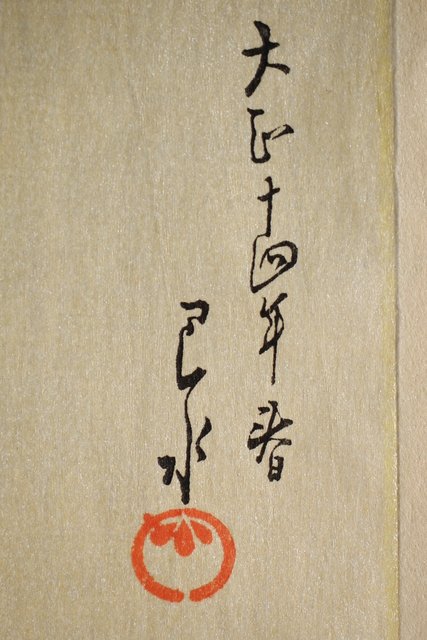 大正十四年春
巴水